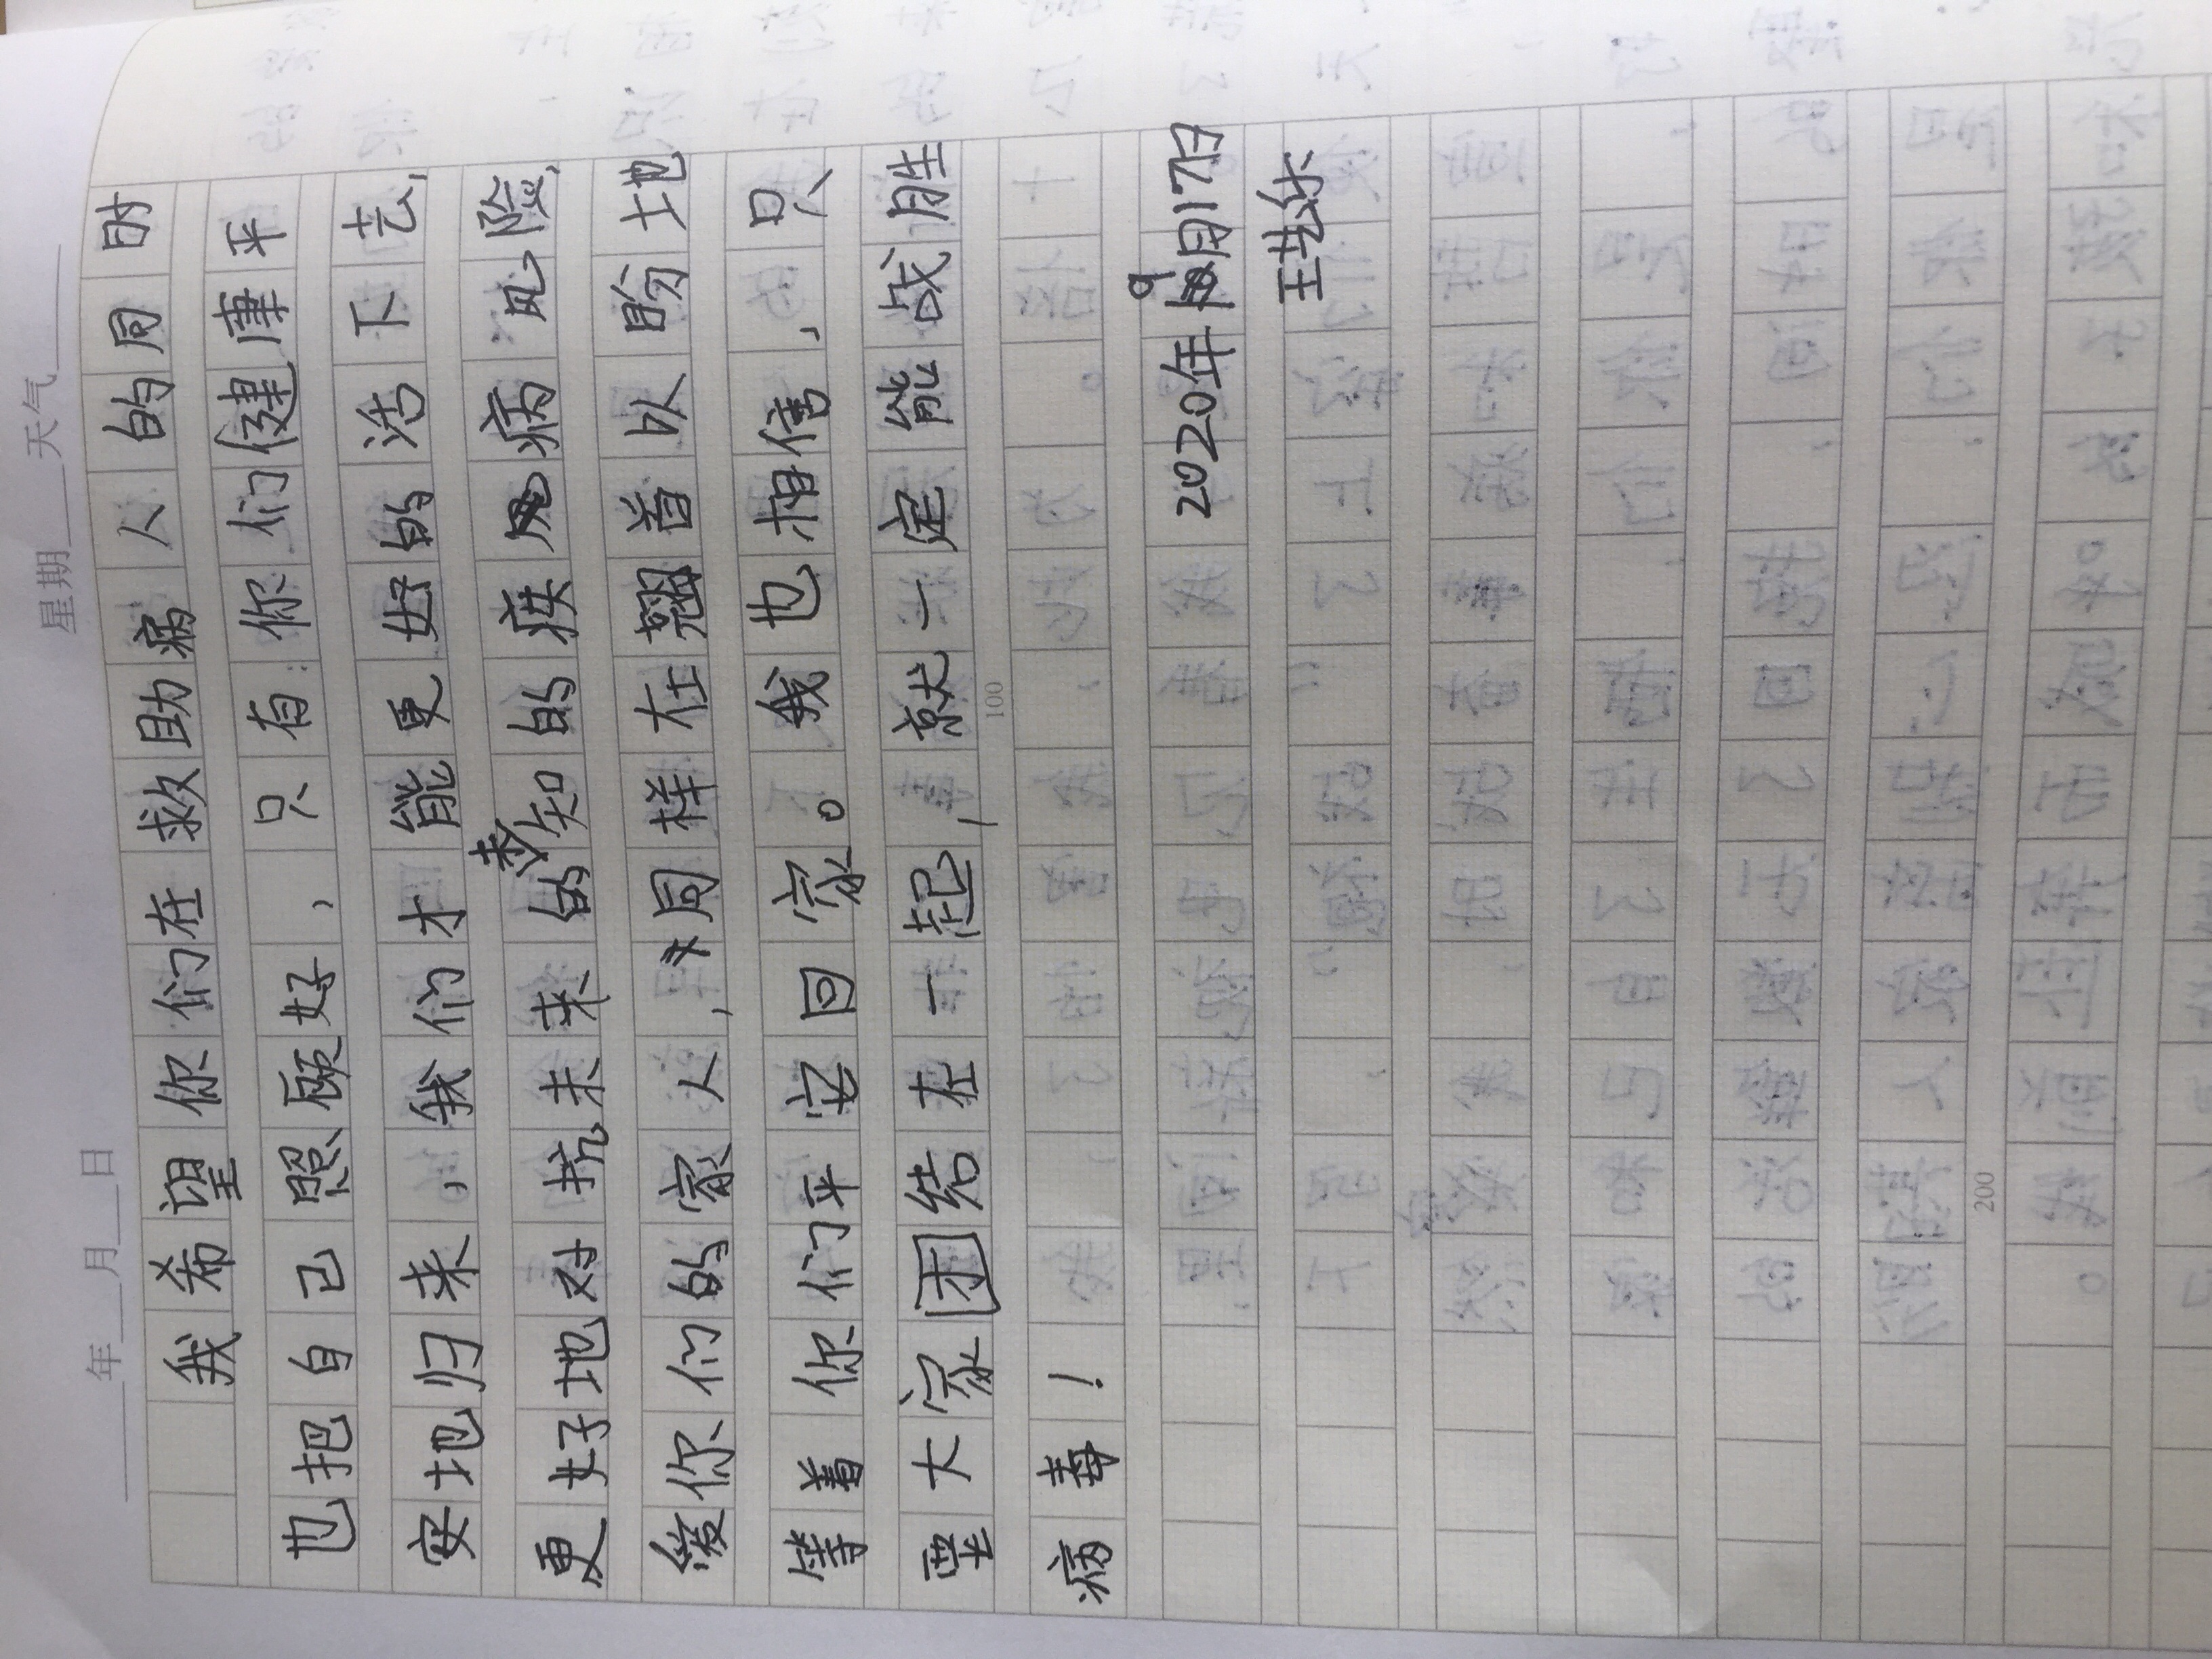 年 月 日 星期 天气
我希望你们在救助病人的同时
也把自己照顾好，只有你们健康平
安地归来，我们才能更好的活下去，
更好地对抗未来未知的疾病风险，
你们的家人，同样在翘首以盼地
等着你们平安回家。我也相信，只
要大家团结在一起，就一定能战胜
100
病毒！
2020年9月17日
200